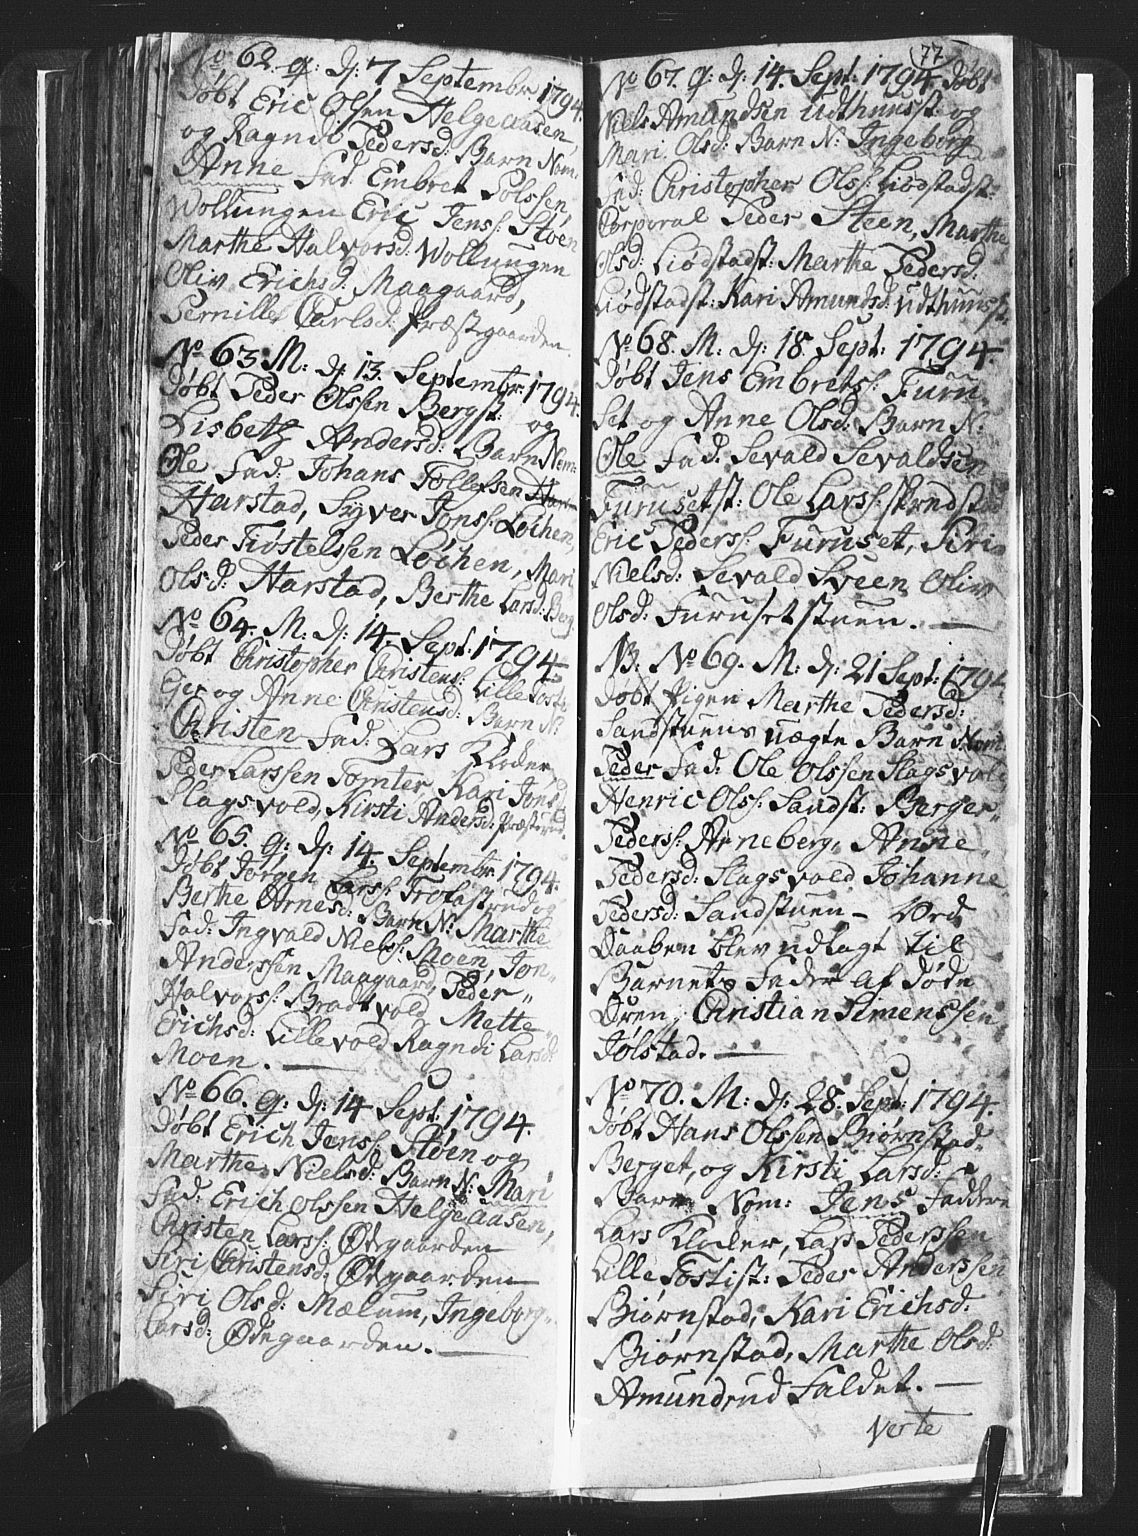 No 62. q: d: 7 Septembr: 1794.
Døbt Eric Olsen Helgeaasen,
og Ragndi Pedersd: Barn Nom:
Anne Fad: Embret Polssen
Wollungen Eric Jens: Støen
Marthe Halvorsd: Wollungen
Oliv Erichsd: Maagaard,
Pernille Carlsd: Præstegaarden.
No 63. M: d: 13. Septembr: 1794.
Døbt Peder Olssen Bergst: og
Lisbeth Andersd: Barn Nom:
Ole Fad: Johans Tollefsen
Harstad, Syver Jons: Løchen,
Peder Kiøstelssen Løchen, Mari
Olsd: Harstad, Berthe Larsd: Berg
No 64. M: d: 14. Sept: 1794
Døbt Christopher Christens: Lille Fosti
Ejer og Anne Christensd: Barn N:
Christen Fad: Lars Kloder,
Peder Larssen Tomter, Kari Jonsd
Slagsvold, Kirsti Andersd: Præsterud.
No 65. q: d: 14. Septembr: 1794.
Døbt Jørgen Lars: Trofastrud og
Berthe Arnesd: Barn N: Marthe
Fad: Ingvald Niels: Moen, Jon-
Anderssen Maagaard, Peder
Halvors: Bradtvold Mette
Erichsd: Lillevold Ragndi Larsd:
Moen.
No 66. q: d: 14 Sept: 1794.
Døbt Erich Jens: Støen og
Marthe Nielsd: Barn N: Mari
Fad: Erich Olssen Helgeaasen,
Christen Lars: Ødegaarden
Siri Christensd: Ødegaarden
Siri Olsd: Mælum, Ingeborg
Larsd: Ødegaarden.
77
No 67. q: d: 14. Sept: 1794. Døbt
Niels Amundsen Udthusst: og
Mari Olsd: Barn N: Ingeborg
Fad: Christopher Ols: Liødstadst:
Corporal Peder Steen, Marthe
Olsd: Liødstadst: Marthe Pedersd:
Liødstadst: Kari Amundsd: Udthusst:
No 68. M: d: 18. Sept: 1794
Døbt Jens Embrets: Furu-
set og Anne Olsd: Barn N:
Ole Fad: Sevald Sevaldsen
Furusetst: Ole Lars:
Eric Peders: Furuset, Siri
Nielsd: Sevald Sveen, Oliv
Olsd: Furusetstuen.
NB. No 69. M: d: 21 Sept: 1794.
Døbt Pigen Marthe Pedersd:
Sandstuens uægte Barn Nom:
Peder Fad: Ole Olssen Slagsvold
Henric Ols: Sandst: Berger
Peders: Arneberg, Anne
Pedersd: Slagsvold Johanne
Pedersd: Sandstuen - Ved
Daaben blev udlagt til
Barnets Fader af Døde
Dren, Christian Simenssen
Jølstad.
No 70. M: d: 28. Sept: 1794.
Døbt Hans Olssen Biørnstad-
Berget, og Kirsti Larsd:
Barn Nom: Jens Faddere
Lars Kloder, Lars Pederssen
Lille Fostist: Peder Anderssen
Biørnstad, Kari Erichsd:
Biørnstad, Marthe Olsd:
Amundrud Faldet.
Verte